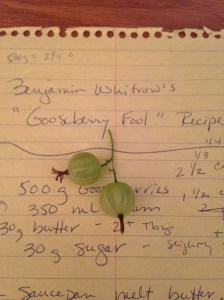 500g = 2¼ c
Benjamin Whitrow's
"Gooseberry Fool" Recipe
1/3
2 ½ c
500 g Gooseberries
350 ml
1 ½ c
30g butter - 2+ Tbsp
30 g sugar - slightly
- Saucepan melt butter